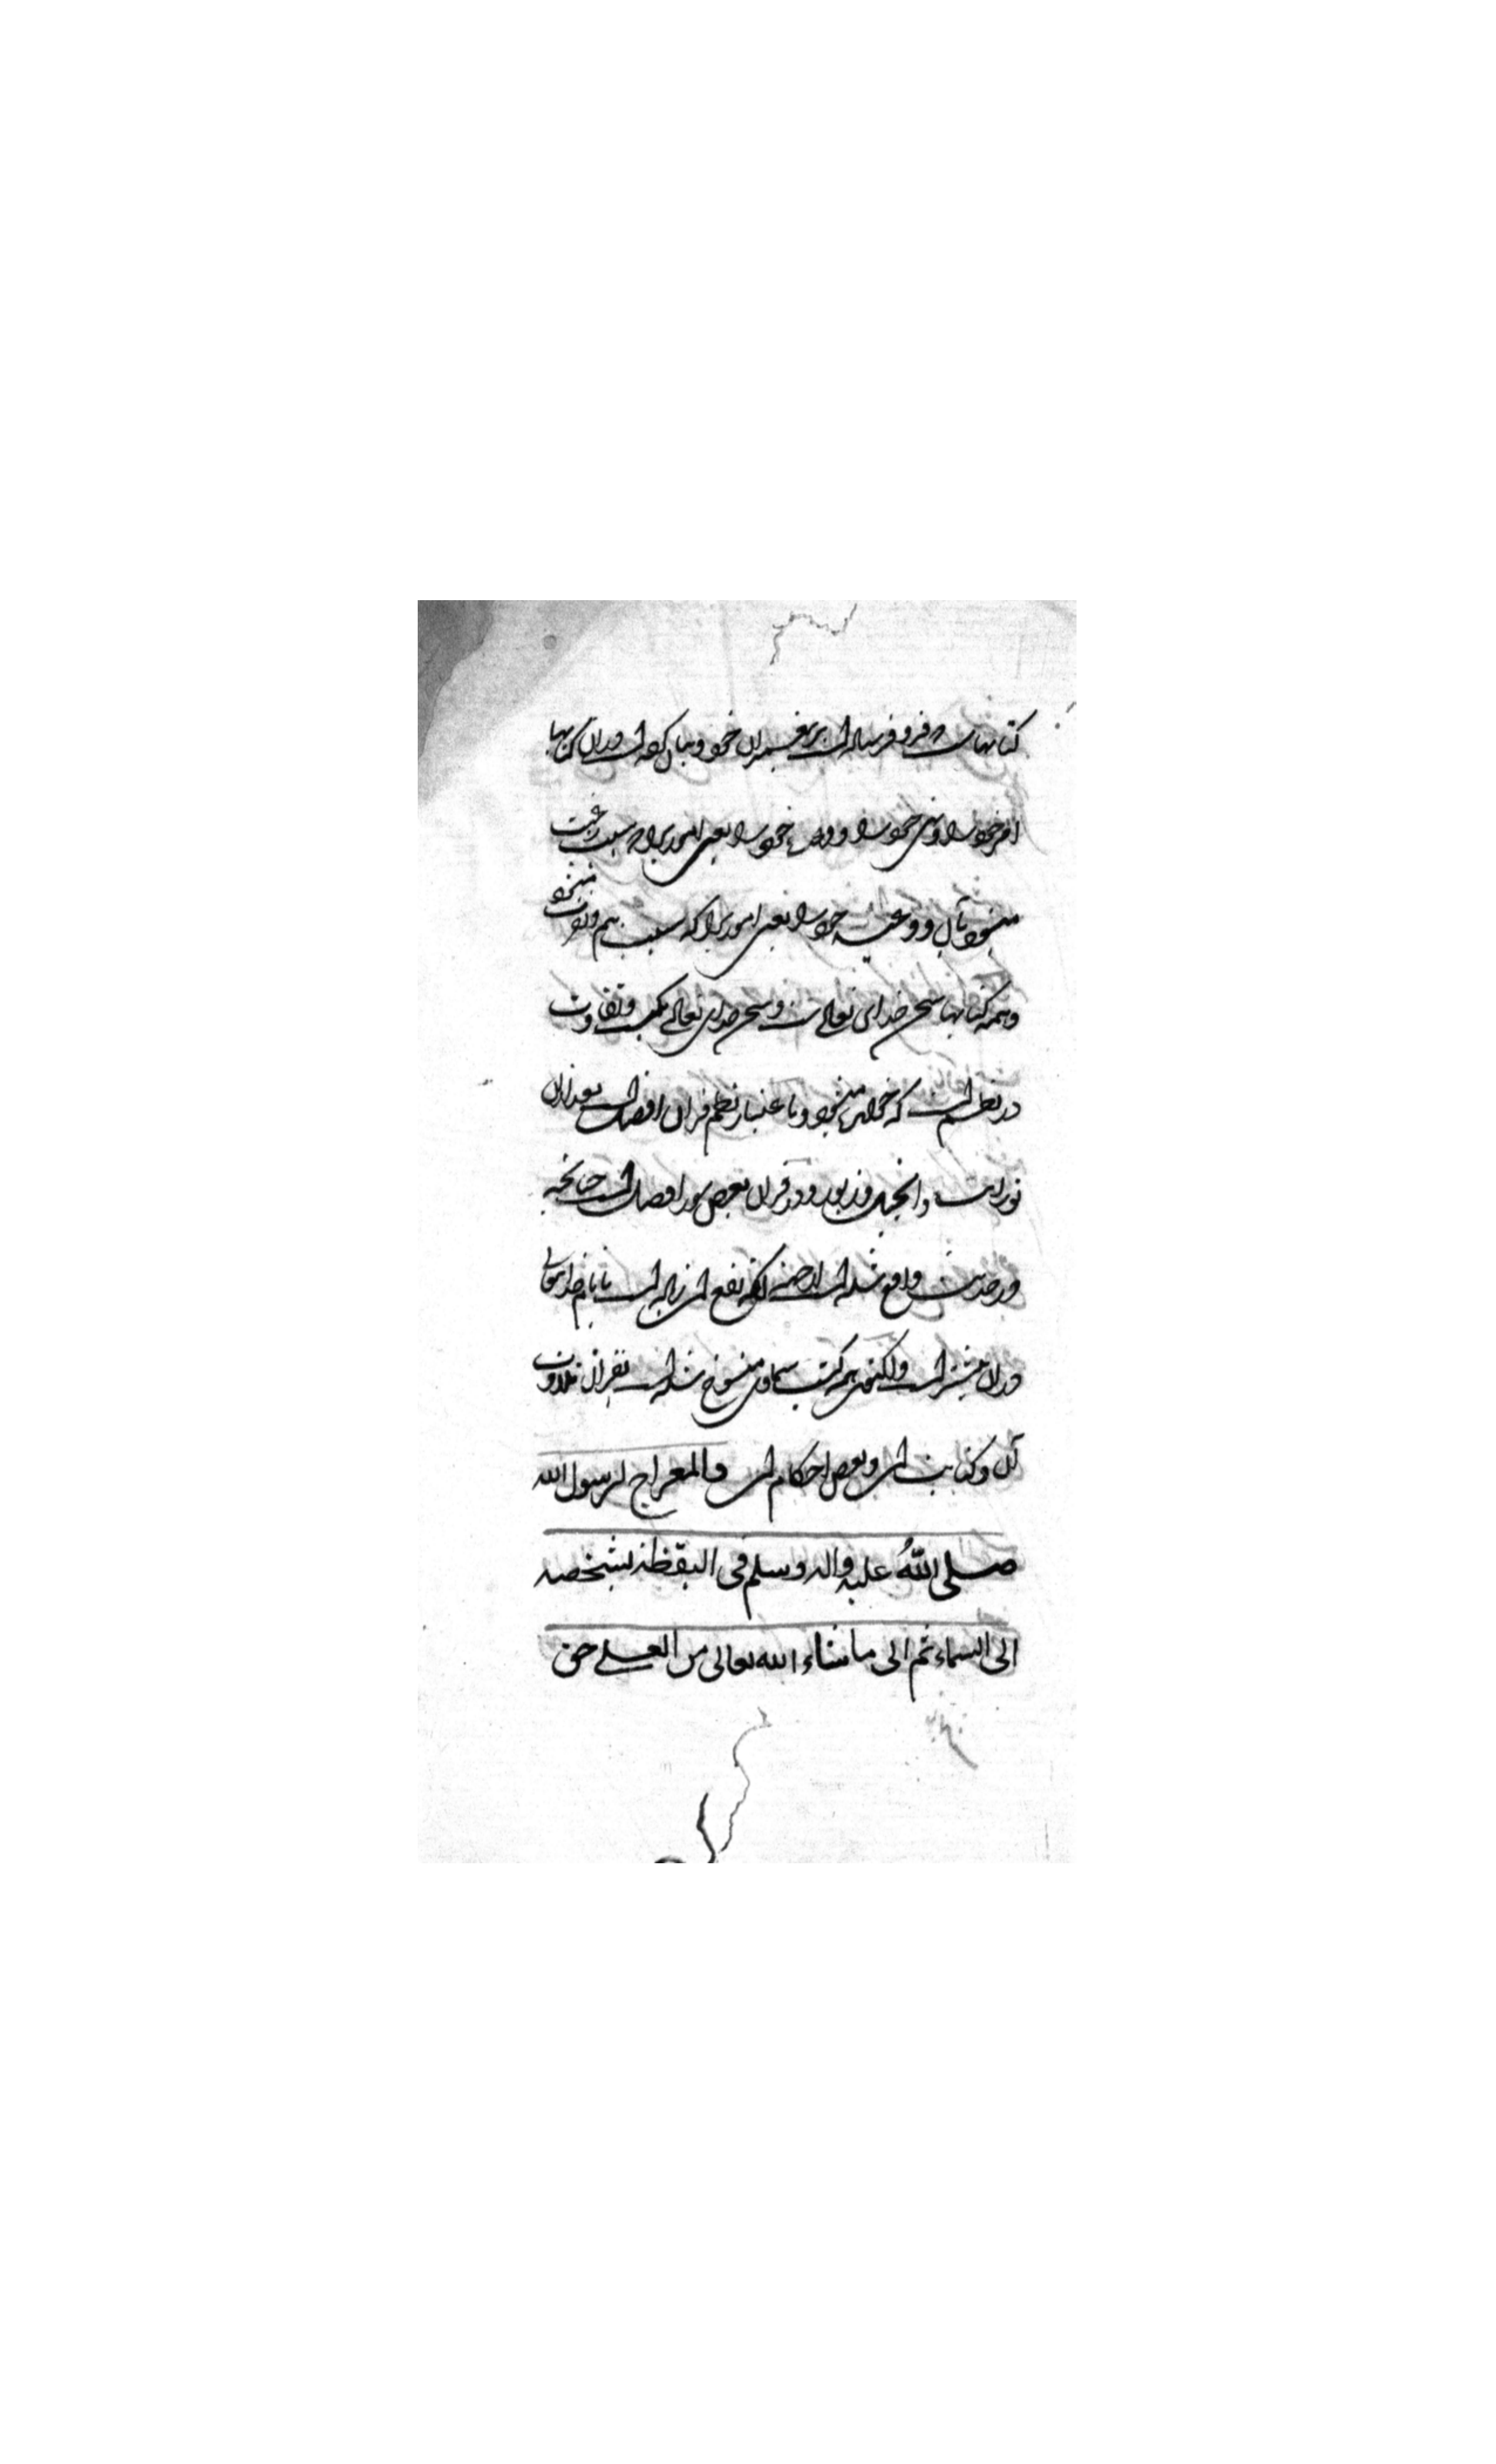 کتابهاست که فرو فرستاده است بر پیغمبران خود و بیان کرده است دران کتابها
امر خود را و نهی خود را و وعده خود را یعنی امور را که سبب رغبت
میشود بآن و وعید خود را یعنی امور را که سبب بیم و خوف میشود
و همه کتابها سخن خدای تعالی است و سخن خدای تعالی یکیست و تفاوت
در نظم است که خوانده میشود و باعتبار نظم قران افضل است بعد ازان
تورات و انجیل و زبور و در قران بعض سور افضل است چنانچه
در حدیث واقع شده است از جهت آنکه نفع آن زیاده است یا نام خدایتعالی
دران بیشتر است ولکن همه کتب سماوی منسوخ شده است بقران تلاوت
آن و کتابت آن و بعض احکام آن والمعراج لرسول الله
صلی اللهُ علیه واله وسلم فی الیقظة بشخصه
الی السماء ثم الی ما شاء الله تعالی من العلی حق